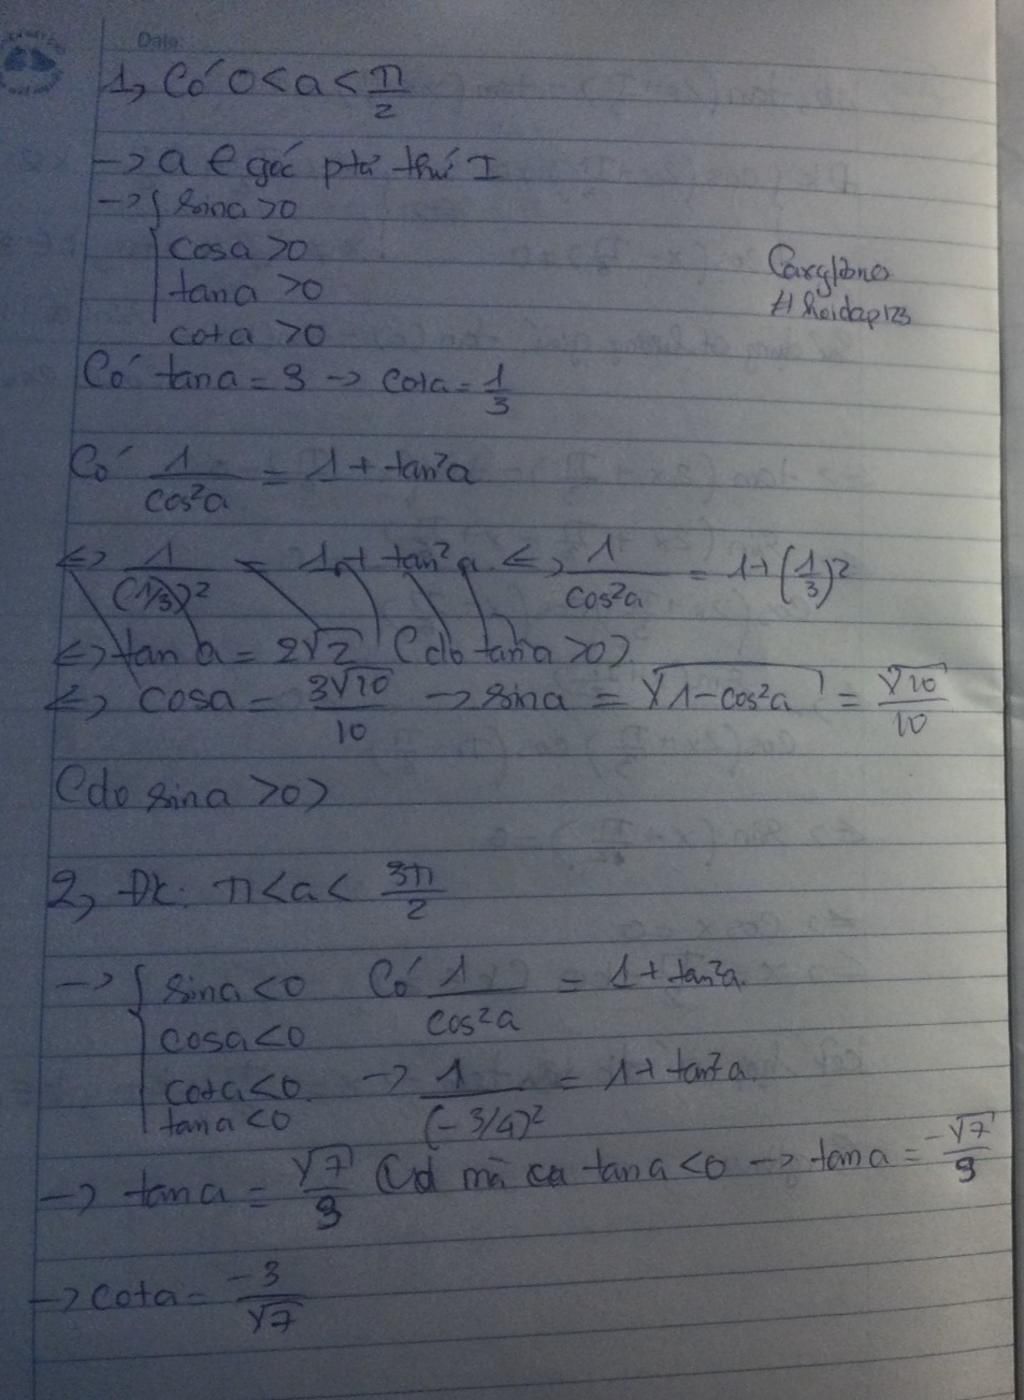 Date
1, Có 0 < a < π/2
→ a ∈ góc ptư thứ I
→ { sina > 0
cosa > 0
tana > 0
cota > 0
#hoidap123
Có tana = 3 → cota = 1/3
Có 1/cos²a = 1 + tan²a
<=> 1/(1/3)² = 1 + tan²a <=> 1/cos²a = 1 + (1/3)²
<=> tan a = 2√2 (do tana > 0)
<=> cosa = 3√10/10 → sina = √(1 - cos²a) = √10/10
(do sina > 0)
2, Đk: π < a < 3π/2
→ { sina < 0 Có 1/cos²a = 1 + tan²a.
cosa < 0
cota < 0. → 1/(-3/4)² = 1 + tan²a
tana < 0
→ tana = √7/3 mà tana < 0 → tana = -√7/3
→ cota = -3/√7